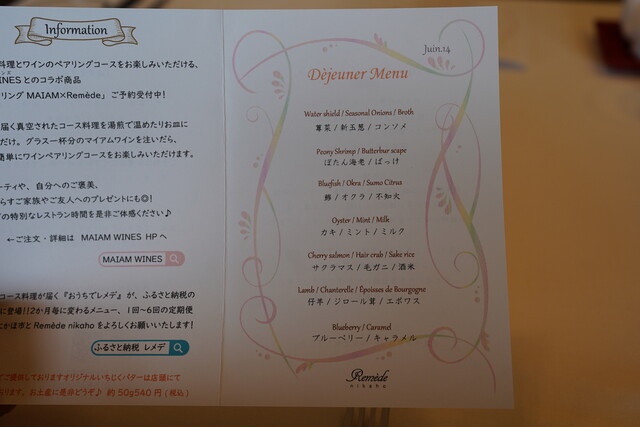 Information
料理とワインのペアリングコースをお楽しみいただける、
INESとのコラボ商品
リング MAIAM×Remède」ご予約受付中!
届く真空されたコース料理を湯煎で温めたりお皿に
だけ。グラス一杯分のマイアムワインを注いだら、
簡単にワインペアリングコースをお楽しみいただけます。
ーティや、自分へのご褒美、
らすご家族やご友人へのプレゼントにも◎!
の特別なレストラン時間を是非ご体感ください♪
←ご注文・詳細は MAIAM WINES HPへ
MAIAM WINES
コース料理が届く『おうちでレメデ』が、ふるさと納税の
に登場!!2か月毎に変わるメニュー、1回~6回の定期便
にかほ市とRemède nikahoをよろしくお願いいたします!
ふるさと納税 レメデ
ご提供しておりますオリジナルいちじくバターは店頭にて
おります。お土産に是非どうぞ♪ 約50g540円(税込)
Juin.14
Déjeuner Menu
Water shield / Seasonal Onions / Broth
蓴菜 / 新玉葱 / コンソメ
Peony Shrimp / Butterbur scape
ぼたん海老 / ばっけ
Bluefish / Okra / Sumo Citrus
鯥 / オクラ / 不知火
Oyster / Mint / Milk
カキ / ミント / ミルク
Cherry salmon / Hair crab / Sake rice
サクラマス / 毛ガニ / 酒米
Lamb / Chanterelle / Époisses de Bourgogne
仔羊 / ジロール茸 / エポワス
Blueberry / Caramel
ブルーベリー / キャラメル
Remède
nikaho